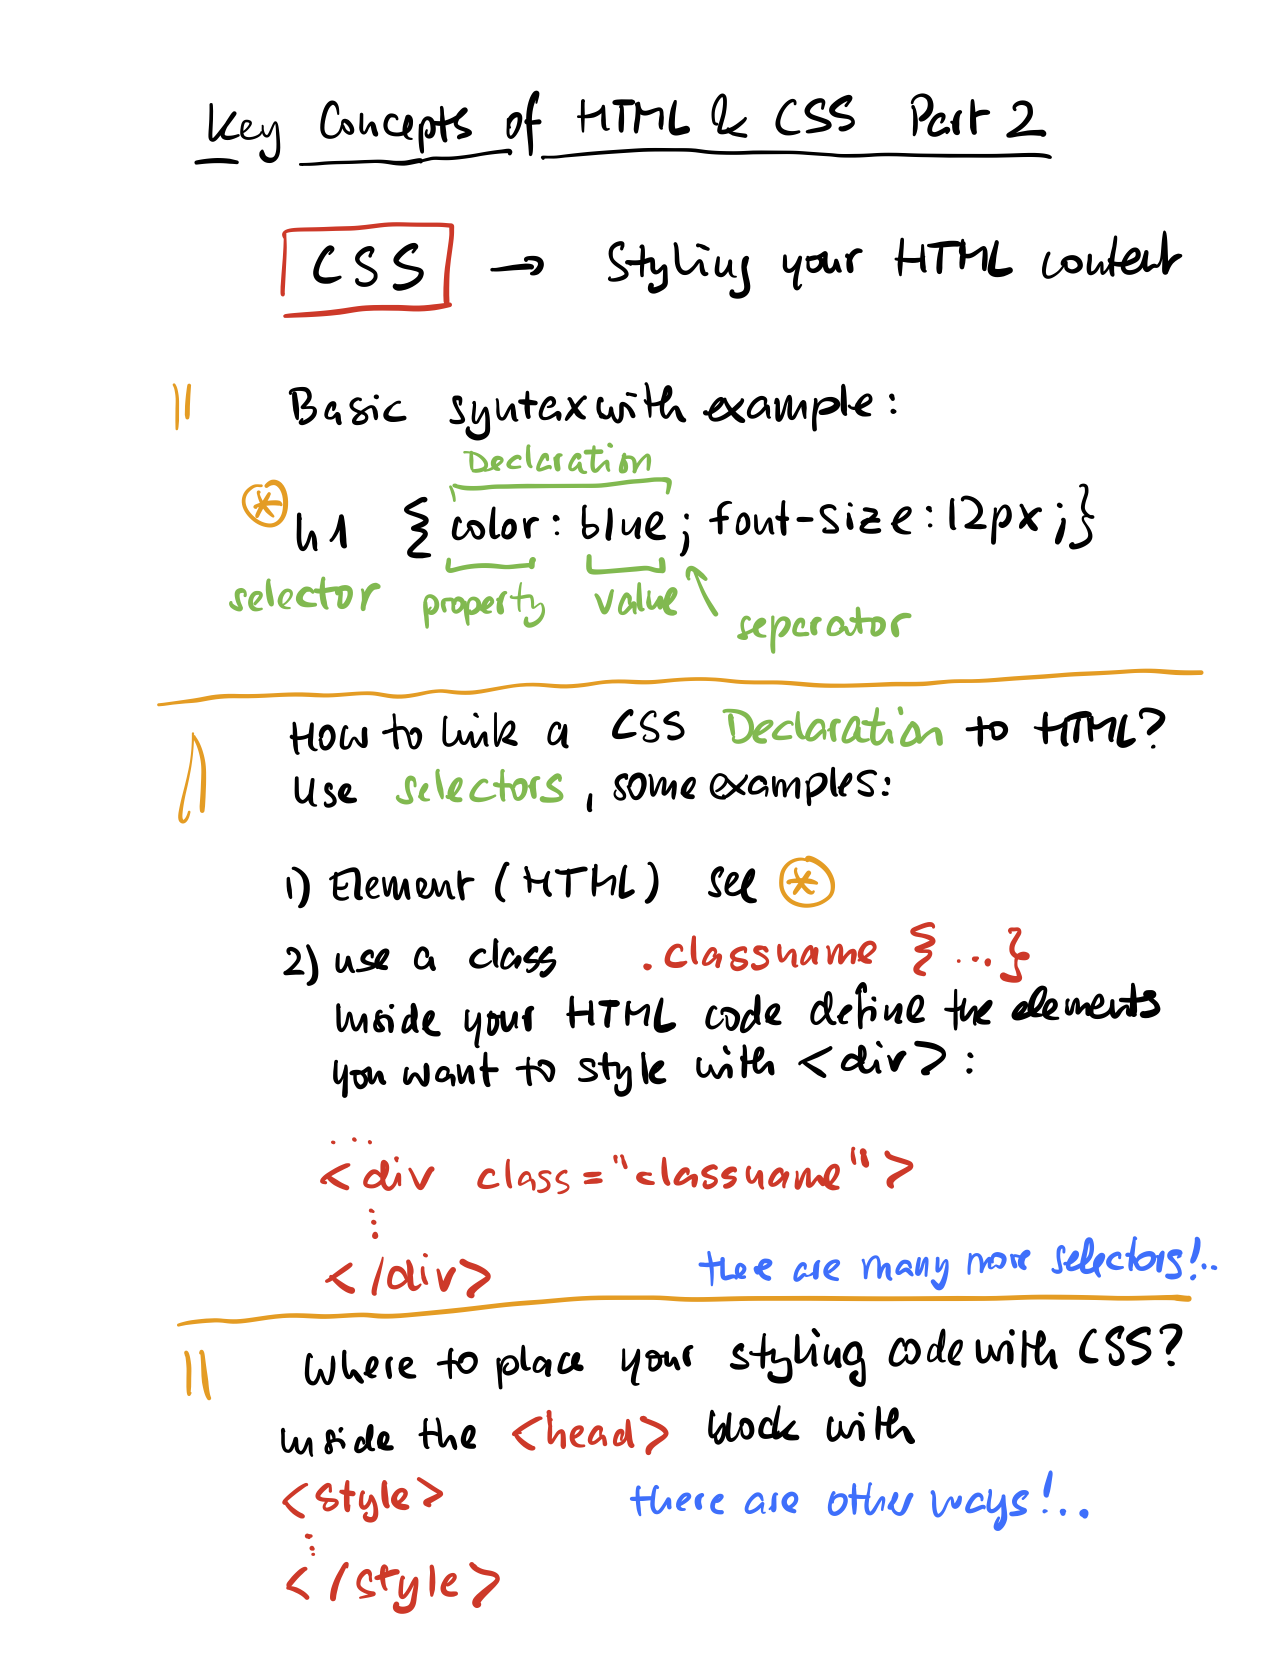 Key Concepts of HTML & CSS Part 2
CSS → Styling your HTML content
Basic syntax with example:
Declaration
* h1 { color: blue; font-size: 12px;}
selector property value separator
How to link a CSS Declaration to HTML?
Use selectors, some examples:
1) Element (HTML) see *
2) use a class .classname { ... }
Inside your HTML code define the elements
you want to style with <div> :
...
<div class="classname">
⋮
</div> there are many more selectors!..
Where to place your styling code with CSS?
Inside the <head> block with
<style> there are other ways!..
⋮
</style>